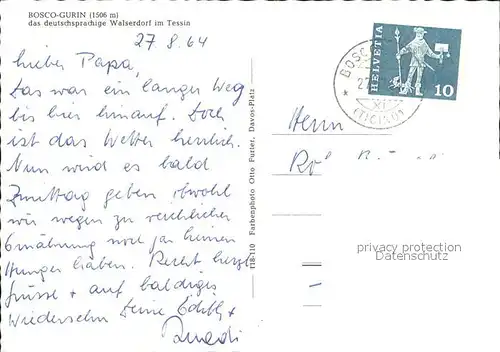 BOSCO-GURIN (1506 m)
das deutschsprachige Walserdorf im Tessin
27.8.64
Lieber Papa,
Das war ein langer Weg
bis hier hinauf. Doch
ist das Wetter herrlich.
Nun wird es bald
Zmittag geben, obwohl
wir wegen zu reichlicher
Ernährung noch gar keinen
Hunger haben. Recht herzl.
Grüsse + auf baldiges
Wiedersehn Deine Edith +
Ruedi
118-110 Farbenphoto Otto Furter, Davos-Platz
HELVETIA
10
BOSC
(TICINO)
Herrn
privacy protection
Datenschutz